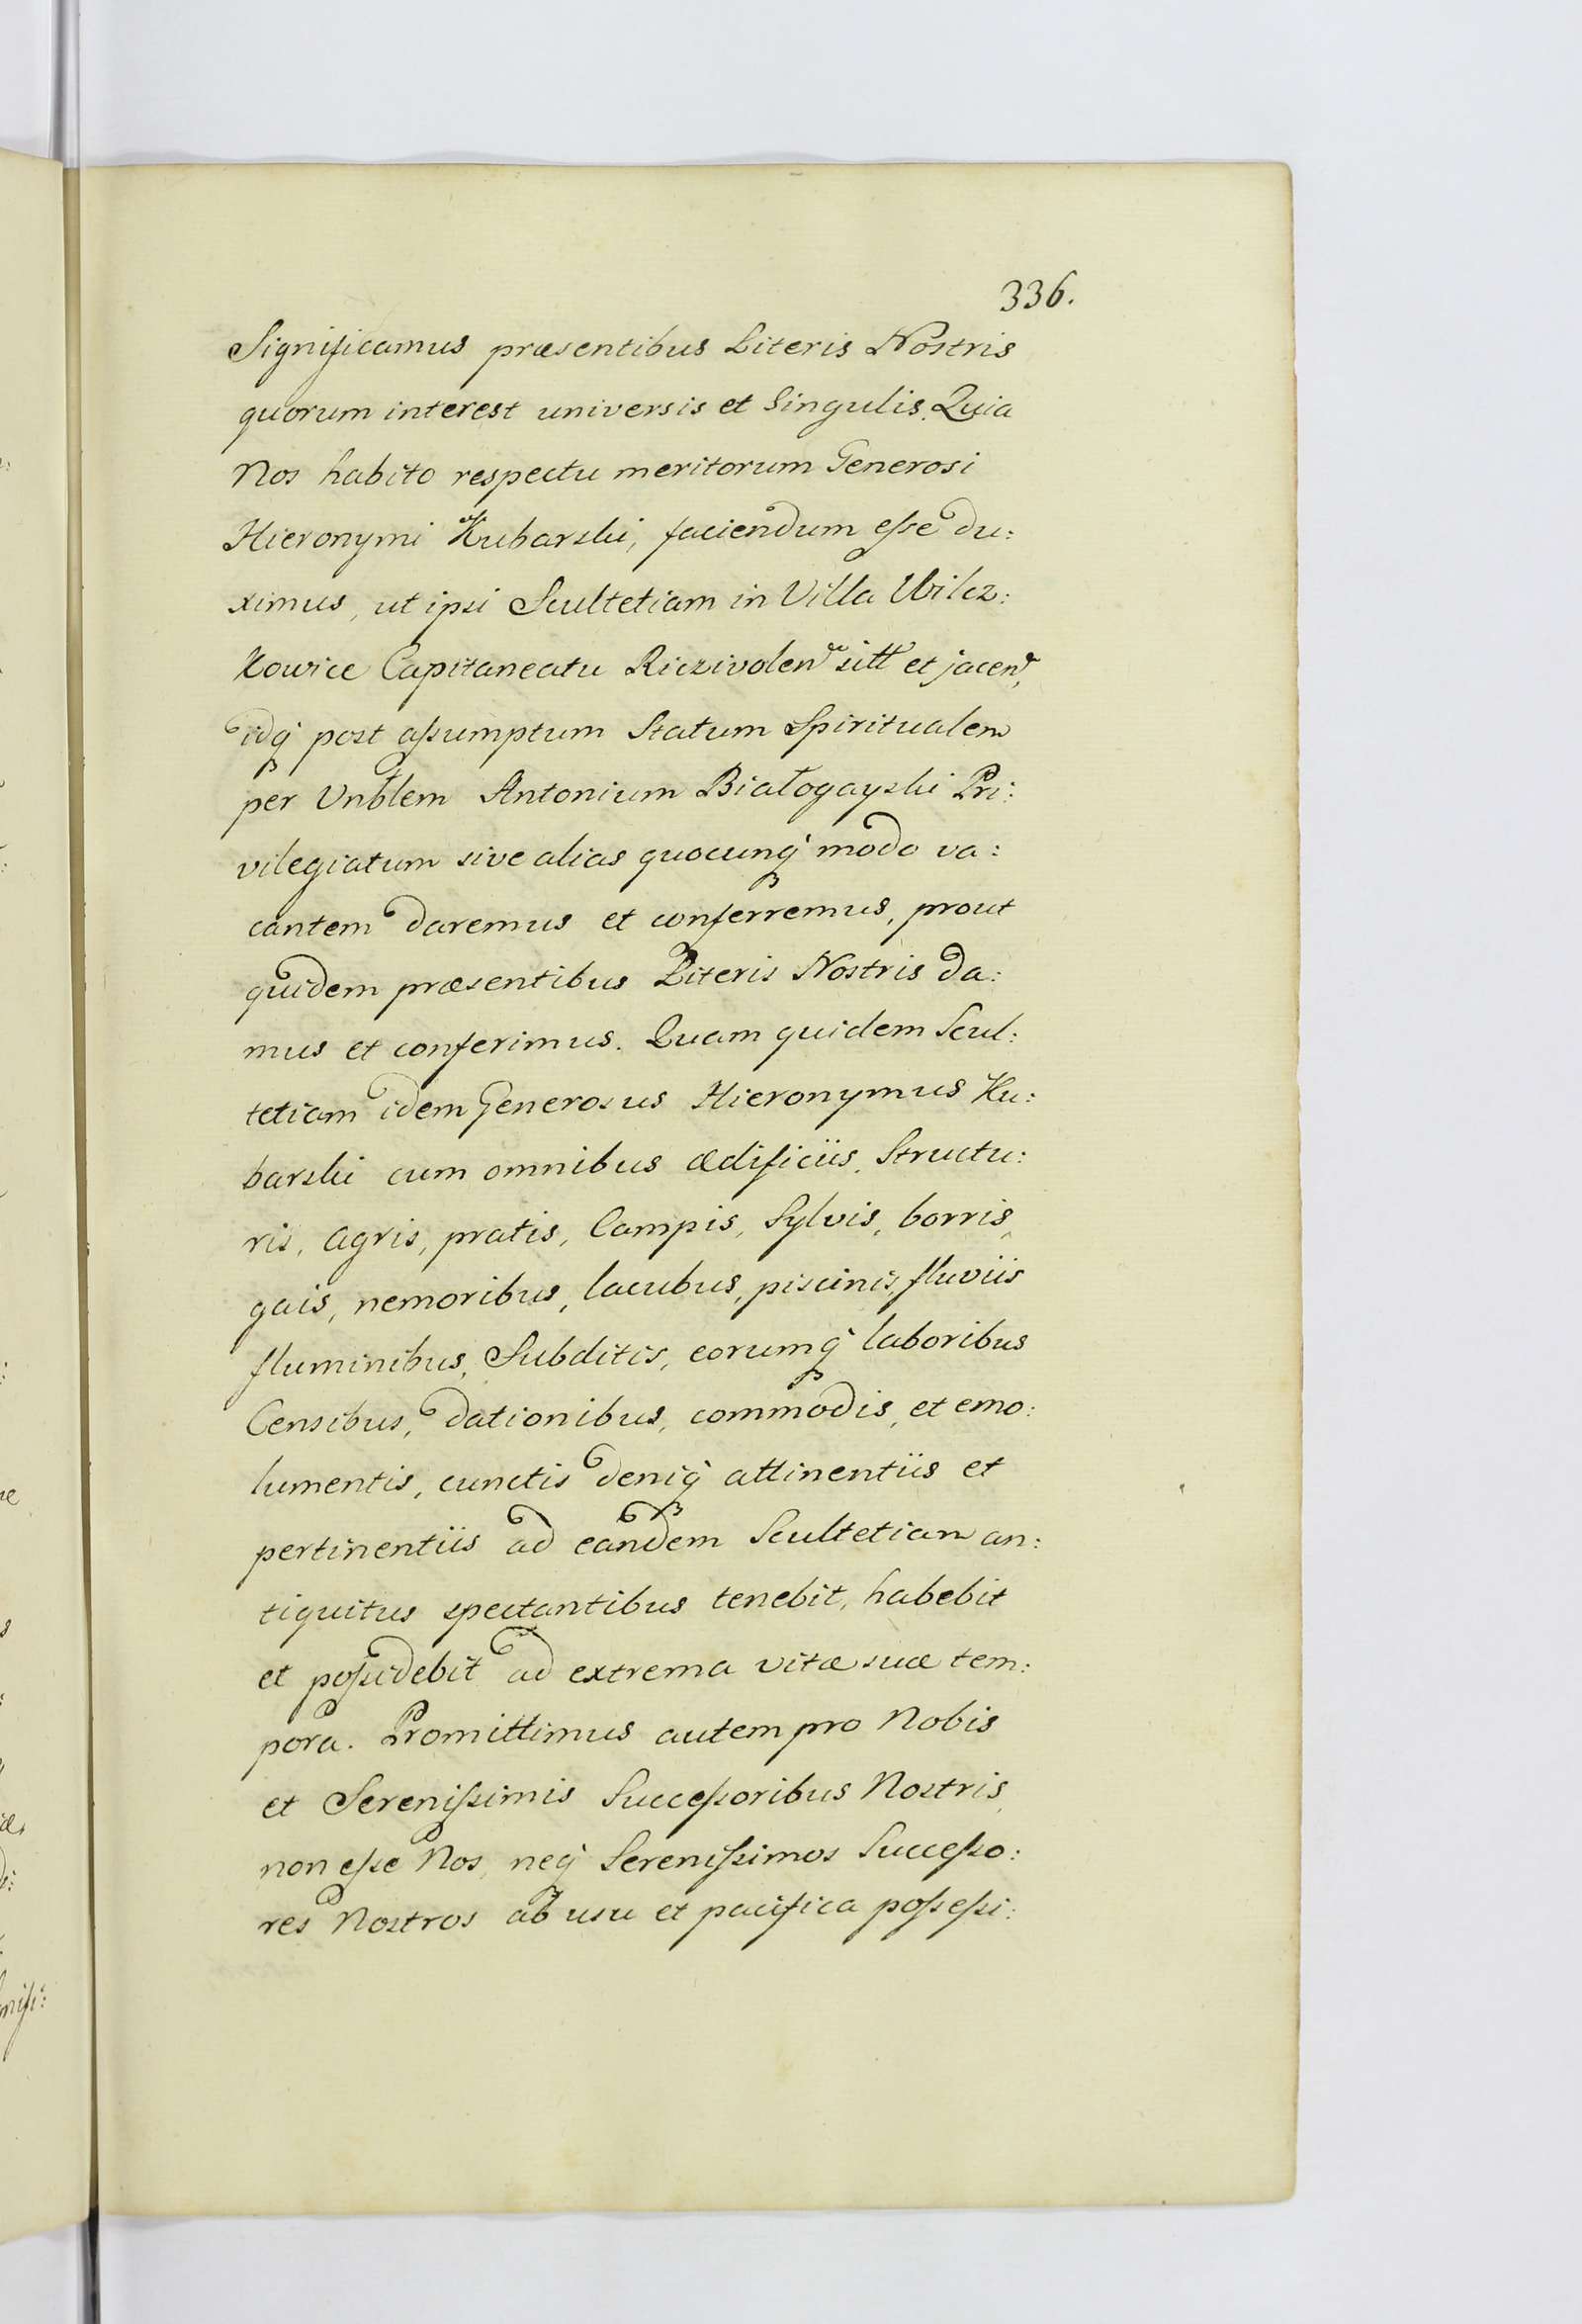 336.
Significamus præsentibus Literis Nostris
quorum interest universis et Singulis. Quia
Nos habito respectu meritorum Generosi
Hieronymi Kubarski, faciendum eſse du:
ximus, ut ipsi Scultetiam in Villa Wilcz:
kowice Capitaneatu Riczivolen sitt et jacen,
idq post aſsumptum Statum Spiritualem
per Vnblem Antonium Białogayski Pri:
vilegiatum sive alias quocunq modo va:
cantem daremus et conferremus, prout
quidem præsentibus Literis Nostris da:
mus et conferimus. Quam quidem Scul:
tetiam idem Generosus Hieronymus Ku:
barski cum omnibus ædificiis, Structu:
ris, agris, pratis, Campis, Sylvis, borris,
gais, nemoribus, lacubus, piscinis, fluviis
fluminibus, Subditis, eorumq laboribus
Censibus, dationibus, commodis, et emo:
lumentis, cunctis deniq attinentiis et
pertinentiis ad eandem Scultetiam an:
tiquitus spectantibus tenebit, habebit
et poſsidebit ad extrema vitæ suæ tem:
pora. Promittimus autem pro Nobis
et Sereniſsimis Succeſsoribus Nostris,
non eſse Nos, neq Sereniſsimos Succeſso:
res Nostros ab usu et pacifica poſseſsi: